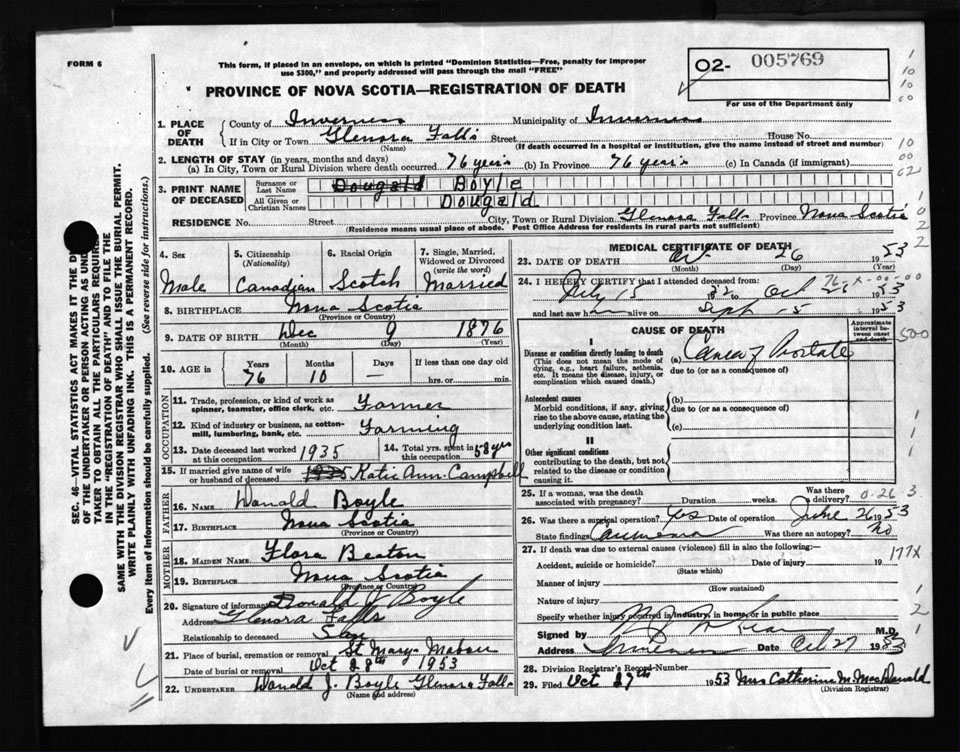 FORM 6
This form, if placed in an envelope, on which is printed "Dominion Statistics—Free, penalty for improper
use $300," and properly addressed will pass through the mail "FREE"
O2- 005769
For use of the Department only
PROVINCE OF NOVA SCOTIA—REGISTRATION OF DEATH
1. PLACE OF DEATH
County of Inverness Municipality of Inverness
If in City or Town Glenora Falls Street House No.
(Name) (If death occurred in a hospital or institution, give the name instead of street and number)
2. LENGTH OF STAY (in years, months and days)
(a) In City, Town or Rural Division where death occurred 76 years (b) In Province 76 years (c) In Canada (if immigrant)
3. PRINT NAME OF DECEASED
Surname or Last Name Dougald Boyle
All Given or Christian Names Dougald
RESIDENCE No. Street City, Town or Rural Division Glenora Falls Province Nova Scotia
(Residence means usual place of abode. Post Office Address for residents in rural parts not sufficient)
4. Sex Male
5. Citizenship (Nationality) Canadian
6. Racial Origin Scotch
7. Single, Married, Widowed or Divorced (write the word) Married
8. BIRTHPLACE Nova Scotia
(Province or Country)
9. DATE OF BIRTH Dec 9 1876
(Month) (Day) (Year)
10. AGE in Years 76 Months 10 Days — If less than one day old hrs. or min.
OCCUPATION
11. Trade, profession, or kind of work as spinner, teamster, office clerk, etc. Farmer
12. Kind of industry or business, as cotton-mill, lumbering, bank, etc. Farming
13. Date deceased last worked at this occupation 1935
14. Total yrs. spent in this occupation 58 yrs
15. If married give name of wife or husband of deceased 1935 Katie Ann Campbell
FATHER
16. NAME Donald Boyle
17. BIRTHPLACE Nova Scotia
(Province or Country)
MOTHER
18. MAIDEN NAME Flora Beaton
19. BIRTHPLACE Nova Scotia
(Province or Country)
20. Signature of informant Donald J. Boyle
Address Glenora Falls
Relationship to deceased Son
21. Place of burial, cremation or removal St Marys Mabou
Date of burial or removal Oct 28th 1953
22. UNDERTAKER Donald J. Boyle Glenora Falls
(Name and address)
MEDICAL CERTIFICATE OF DEATH
23. DATE OF DEATH Oct 26 1953
(Month) (Day) (Year)
24. I HEREBY CERTIFY that I attended deceased from:
July 15 to Oct 26 1953
and last saw h alive on Sept 5 1953
CAUSE OF DEATH
Approximate interval between onset and death
I
Disease or condition directly leading to death (a) Cancer of Prostate
(This does not mean the mode of dying, e.g., heart failure, asthenia, etc. It means the disease, injury, or complication which caused death.)
due to (or as a consequence of)
Antecedent causes (b)
Morbid conditions, if any, giving rise to the above cause, stating the underlying condition last.
due to (or as a consequence of)
(c)
II
Other significant conditions
contributing to the death, but not related to the disease or condition causing it.
25. If a woman, was the death associated with pregnancy? Duration weeks. Was there a delivery?
26. Was there a surgical operation? Yes Date of operation June 26 1953
State findings Was there an autopsy? No
27. If death was due to external causes (violence) fill in also the following:—
Accident, suicide or homicide? Date of injury 19
(State which)
Manner of injury
(How sustained)
Nature of injury
Specify whether injury occurred in industry, in home, or in public place
Signed by M.D.
Address Inverness Date Oct 27 1953
28. Division Registrar's Record Number
29. Filed Oct 27th 1953 Mrs Catherine M. MacDonald
(Division Registrar)
SEC. 46—VITAL STATISTICS ACT MAKES IT THE
OF THE UNDERTAKER OR PERSON ACTING AS
TAKER TO OBTAIN ALL THE PARTICULARS
IN THE "REGISTRATION OF DEATH" AND TO FILE THE
SAME WITH THE DIVISION REGISTRAR WHO SHALL ISSUE THE BURIAL PERMIT.
WRITE PLAINLY WITH UNFADING INK. THIS IS A PERMANENT RECORD.
Every item of information should be carefully supplied. (See reverse side for instructions.)
177X